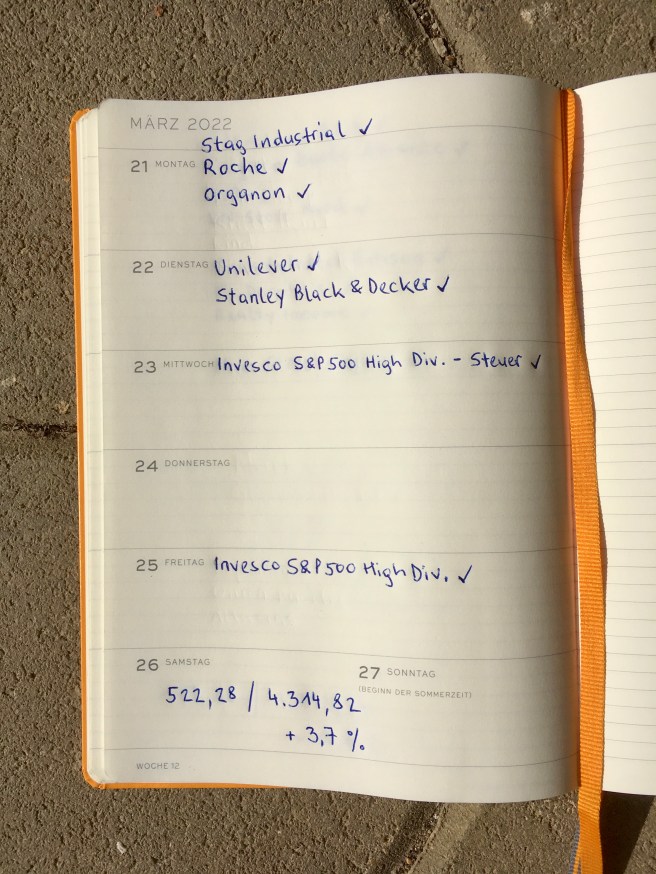 MÄRZ 2022
Stag Industrial ✓
21 MONTAG Roche ✓
Organon ✓
22 DIENSTAG Unilever ✓
Stanley Black & Decker ✓
23 MITTWOCH Invesco S&P500 High Div. - Steuer ✓
24 DONNERSTAG
25 FREITAG Invesco S&P500 High Div. ✓
26 SAMSTAG
27 SONNTAG
(BEGINN DER SOMMERZEIT)
522,28 / 4.314,82
+ 3,7 %
WOCHE 12